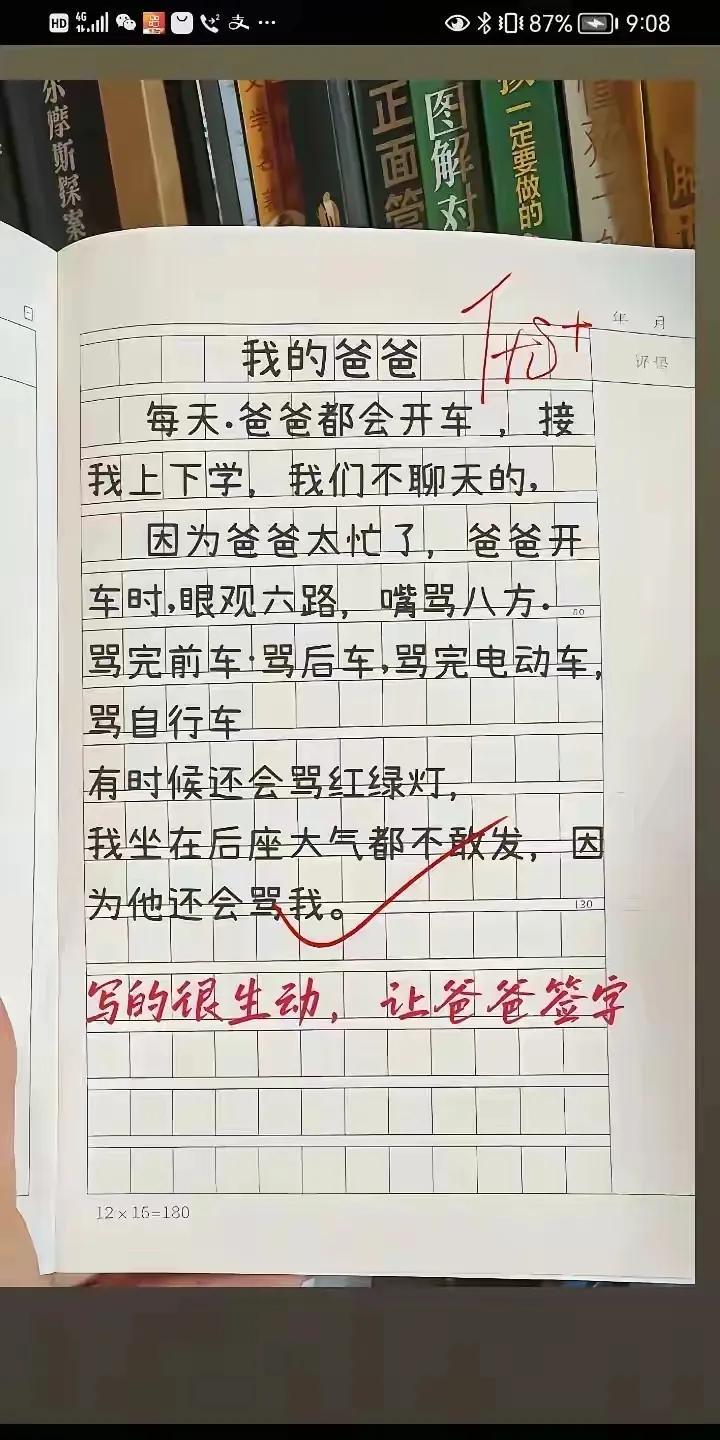 HD 4G 87% 9:08
尔摩斯探案
正面管
图解对
孩一定要做的
日
年 月
我的爸爸
每天.爸爸都会开车，接
我上下学，我们不聊天的，
因为爸爸太忙了，爸爸开
车时，眼观六路，嘴骂八方.
80
骂完前车·骂后车，骂完电动车，
骂自行车
有时候还会骂红绿灯，
我坐在后座大气都不敢发，因
为他还会骂我。
130
写的很生动，让爸爸签字
12×15=180